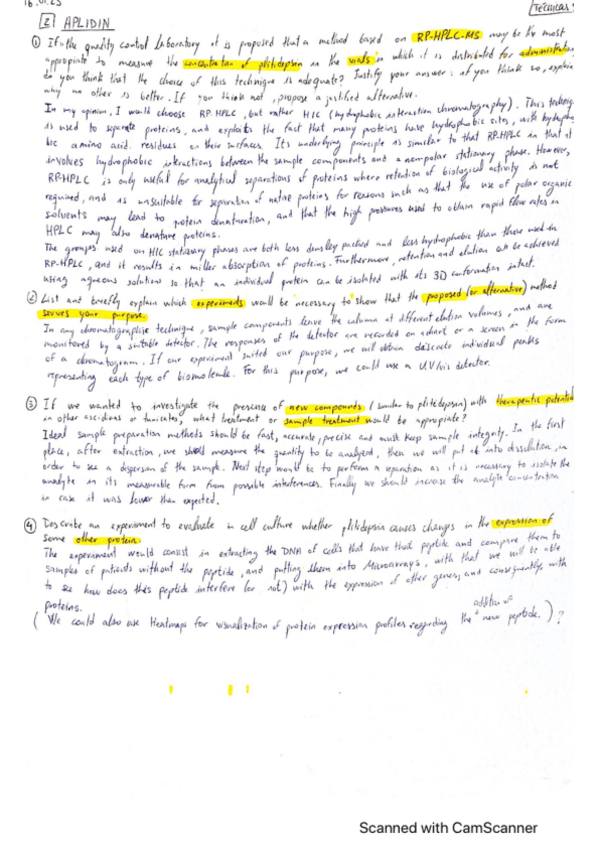 16.01.23
TECNICAS
2 APLIDIN
① If in the quality control laboratory it is proposed that a method based on RP-HPLC-MS may be the most
appropiate to measure the concentration of plitidepsin in the vials in which it is distributed for administration
do you think that the choice of this technique is adequate? Justify your answer: if you think so, explain
why no other is better. If you think not, propose a justified alternative.
In my opinion, I would choose RP-HPLC, but rather HIC (hydrophobic interaction chromatography). This
is used to separate proteins, and exploits the fact that many proteins have hydrophobic sites, with
bic amino acid residues on their surfaces. Its underlying principle is similar to that RP-HPLC in that it
involves hydrophobic interactions between the sample components and a nonpolar stationary phase. However,
RP-HPLC is only useful for analytical separations of proteins where retention of biological activity is not
required, and is unsuitable for separation of native proteins for reasons such as that the use of polar organic
solvents may lead to protein denaturation, and that the high pressures used to obtain rapid flow rates in
HPLC may also denature proteins.
The groups used on HIC stationary phases are both less densley packed and less hydrophobic than those used in
RP-HPLC, and it results in milder absorption of proteins. Furthermore, retention and elution can be achieved
using aqueous solutions so that an individual protein can be isolated with its 3D conformation intact.
② List and briefly explain which experiments would be necessary to show that the proposed (or alternative) method
serves your purpose.
In any chromatographic technique, sample components leave the column at different elution volumes, and are
monitored by a suitable detector. The responses of the detector are recorded on a chart or a screen in the form
of a chromatogram. If our experiment suited our purpose, we will obtain discrete individual peaks
representing each type of biomolecule. For this purpose, we could use a UV/vis detector.
③ If we wanted to investigate the presence of new compounds (similar to plitidepsin) with therapeutic potential
in other ascidians or tunicates, what treatment or sample treatment would be appropiate?
Ideal sample preparation methods should be fast, accurate, precise and must keep sample integrity. In the first
place, after extraction, we should measure the quantity to be analyzed, then we will put it into dissolution, in
order to see a dispersion of the sample. Next step would be to perform a separation as it is necessary to isolate the
analyte in its measurable form from possible interferences. Finally we should increase the analyte concentration
in case it was lower than expected.
④ Describe an experiment to evaluate in cell culture whether plitidepsin causes changes in the expression of
some other protein.
The experiment would consist in extracting the DNA of cells that have that peptide and compare them to
samples of patients without the peptide, and putting them into Microarrays, with that we will be able
to see how does this peptide interfere (or not) with the expression of other genes, and consequently with
proteins.
(We could also use Heatmaps for visualization of protein expression profiles regarding the addition of new peptide.)?
Scanned with CamScanner